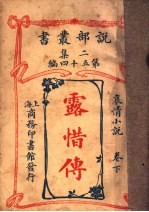 説部叢書
二集
第五十四編
哀情小説 卷下
露惜傳
上海
商務印書館發行